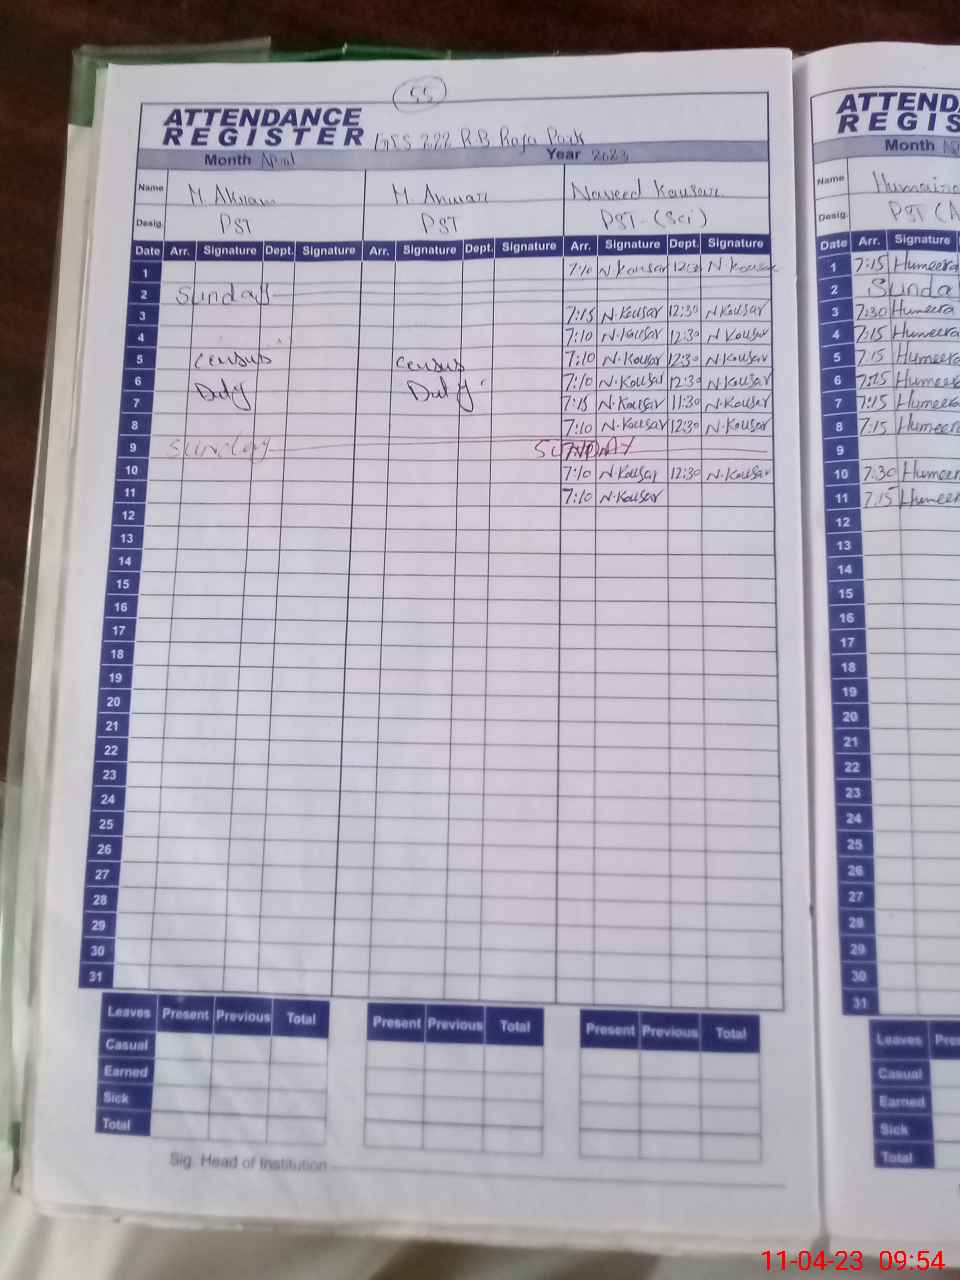 55
ATTENDANCE
REGISTER GES 222 RB Raja Park
Month April Year 2023
Name M. Akram M. Anwar Naveed Kausar
Desig. PST PST PST-(Sci)
Date Arr. Signature Dept. Signature Arr. Signature Dept. Signature Arr. Signature Dept. Signature
1 7:10 N Kousar 12:30 N Kousar
2 Sunday
3 7:15 N.Kousar 12:30 N.Kousar
4 7:10 N.Kousar 12:30 N Kousar
5 Census Census 7:10 N.Kousar 12:30 N.Kousar
6 Duty Duty 7:10 N.Kousar 12:30 N.Kousar
7 7:15 N.Kousar 11:30 N.Kousar
8 7:10 N.Kousar 12:30 N.Kousar
9 Sunday SUNDAY
10 7:10 N.Kousar 12:30 N.Kousar
11 7:10 N.Kousar
12
13
14
15
16
17
18
19
20
21
22
23
24
25
26
27
28
29
30
31
Leaves Present Previous Total Present Previous Total Present Previous Total
Casual
Earned
Sick
Total
Sig. Head of Institution
ATTEND
REGIS
Month
Name Humaira
Desig. PST (A
Date Arr. Signature
1 7:15 Humeera
2 Sunda
3 7:30 Humeera
4 7:15 Humeera
5 7:15 Humeera
6 7:15 Humeer
7 7:15 Humeera
8 7:15 Humeera
9
10 7:30 Humeer
11 7:15 Humeer
12
13
14
15
16
17
18
19
20
21
22
23
24
25
26
27
28
29
30
31
Leaves Pres
Casual
Earned
Sick
Total
11-04-23 09:54